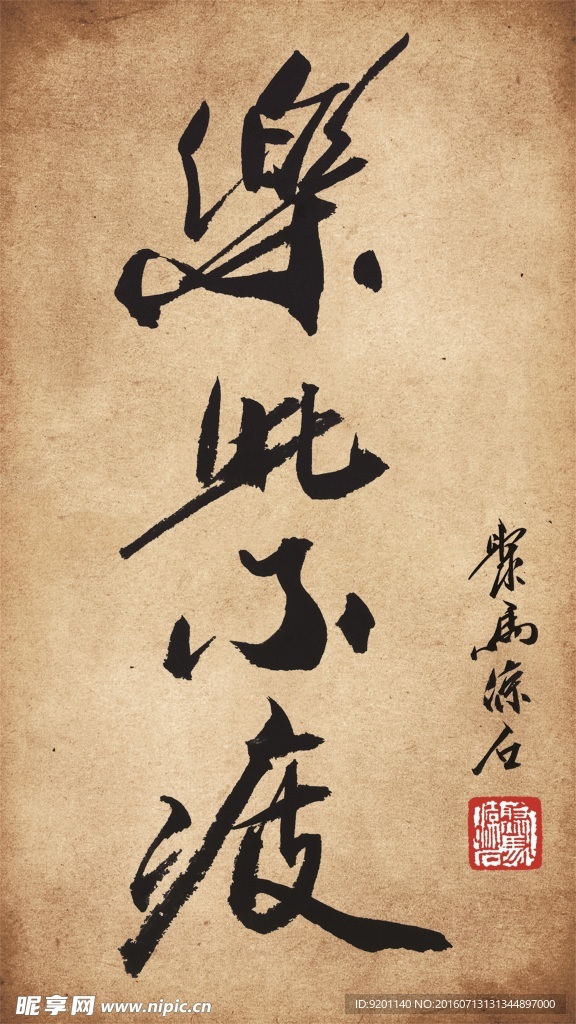 樂此不疲
聚馬涼石
昵享网 www.nipic.cn
ID:9201140 NO:20160713131344897000